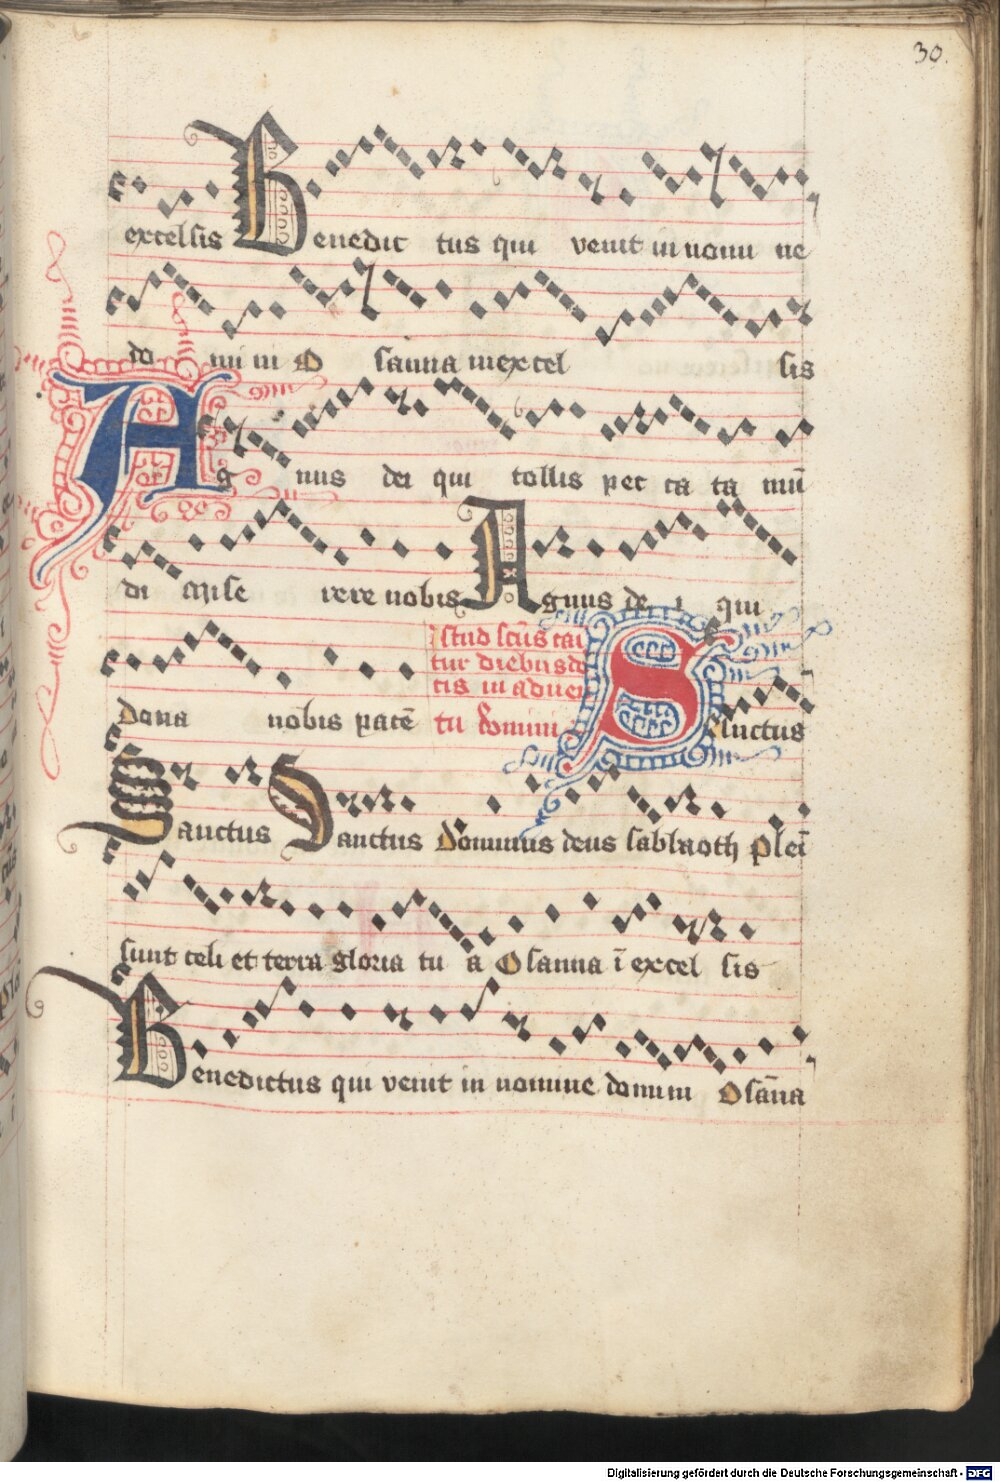 30.
excelsis Benedic tus qui venit in nomi ne
do mi ni O sanna in excel sis
Ag nus dei qui tollis pec ca ta mū
di mise rere nobis Agnus de i qui
Istud scūs cai
tur diebus de
tis in aduen
dona nobis pacē tu domini Sanctus
Sanctus Sanctus dominus deus sabbaoth pleī
sunt celi et terra gloria tu a Osanna ī excel sis
Benedictus qui venit in nomine domini Osāna
Digitalisierung gefördert durch die Deutsche Forschungsgemeinschaft - DFG